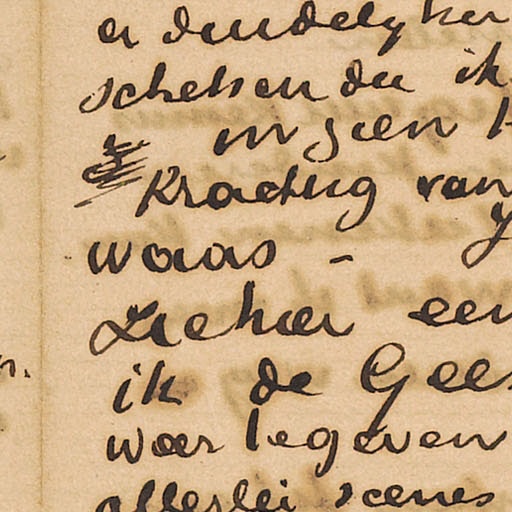 er duidelijker
schetsen die ik
in zien
krachtig van
waas -
Ziehier een
ik de Gees
weer tegeven
allerlei scenes